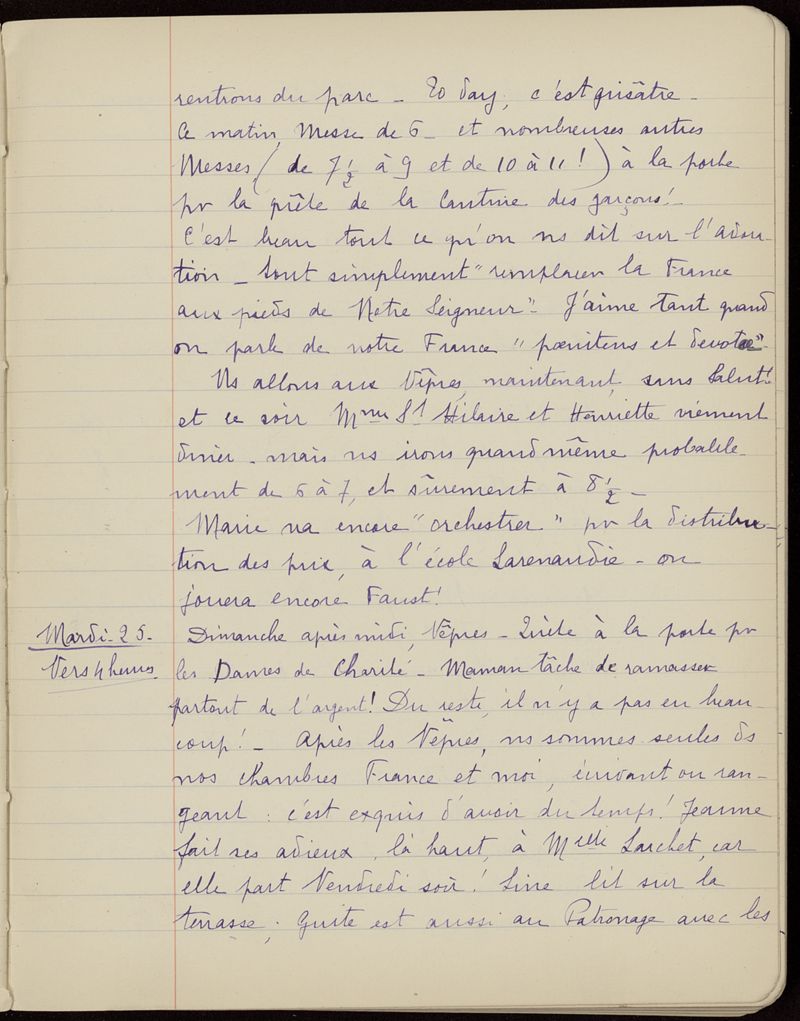 rentrons du parc – To day, c'est grisâtre –
Ce matin, Messe de 6 – et nombreuses autres
Messes (de 7 1/2 à 9 et de 10 à 11 !) à la porte
pr la quête de la Cantine des garçons !
C'est beau tout ce qu'on ns dit sur l'adora-
tion – tout simplement "remplacer la France
aux pieds de Notre Seigneur". J'aime tant quand
on parle de notre France "pœnitens et devota".
Ns allons aux Vêpres, maintenant, sans Salut !
et ce soir Mme St Hilaire et Henriette viennent
dîner – mais ns irons quand même probable-
ment de 6 à 7, et sûrement à 8 1/2 –
Marie va encore "orchestrer" pr la distribu-
tion des prix, à l'école Larenaudie – on
jouera encore Faust !
Mardi – 25 –
Vers 4 heures.
Dimanche après midi, Vêpres – Quête à la porte pr
les Dames de Charité – Maman tâche de ramasser
partout de l'argent ! Du reste, il n'y a pas eu beau-
coup ! – Après les Vêpres, ns sommes seules ds
nos chambres France et moi, écrivant ou ran-
geant : c'est exquis d'avoir du temps ! Jeanne
fait ses adieux, là haut, à Melle Larchet, car
elle part Vendredi soir ! Line lit sur la
terrasse ; Guite est aussi au Patronage avec les